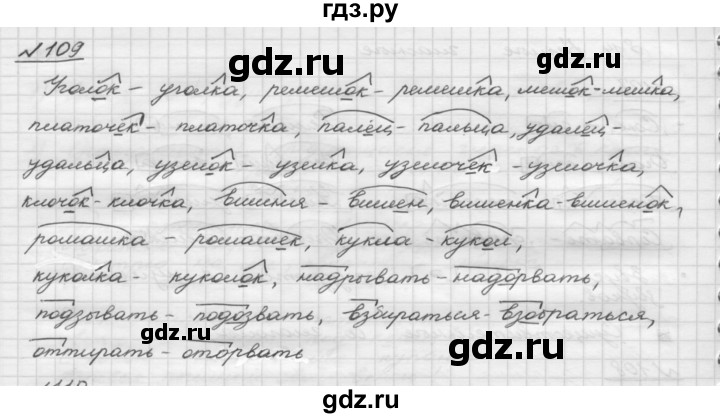 гдз.ру
№109
gdz.ru
gdz.ru
Уголок – уголка, ремешок – ремешка, мешок – мешка,
платочек – платочка, палец – пальца, удалец –
удальца, узелок – узелка, узелочек – узелочка,
клочок – клочка, вишня – вишен, вишенка – вишенок,
ромашка – ромашек, кукла – кукол,
gdz.ru
куколка – куколок, надрывать – надорвать,
подзывать – подозвать, взбираться – взобраться,
gdz.ru
оттирать – оторвать
gdz.ru
gdz.ru